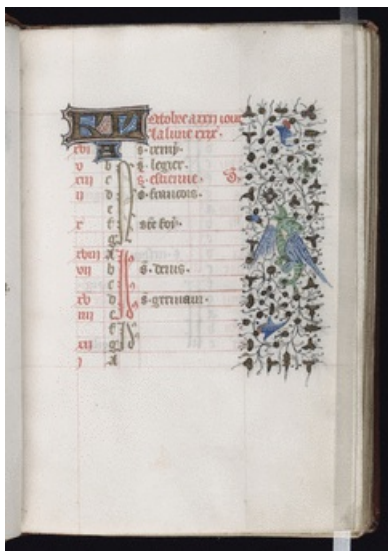 KL octobre a xxxi iour
la lune xxx.
xvi A s. remy.
v b s. legier.
xiii c s. estienne.
ii d s. francois.
e
x f ste foy.
g
xviii A
vii b s. denis.
c
xv d s. germain.
iiii e
f
xii g
i A